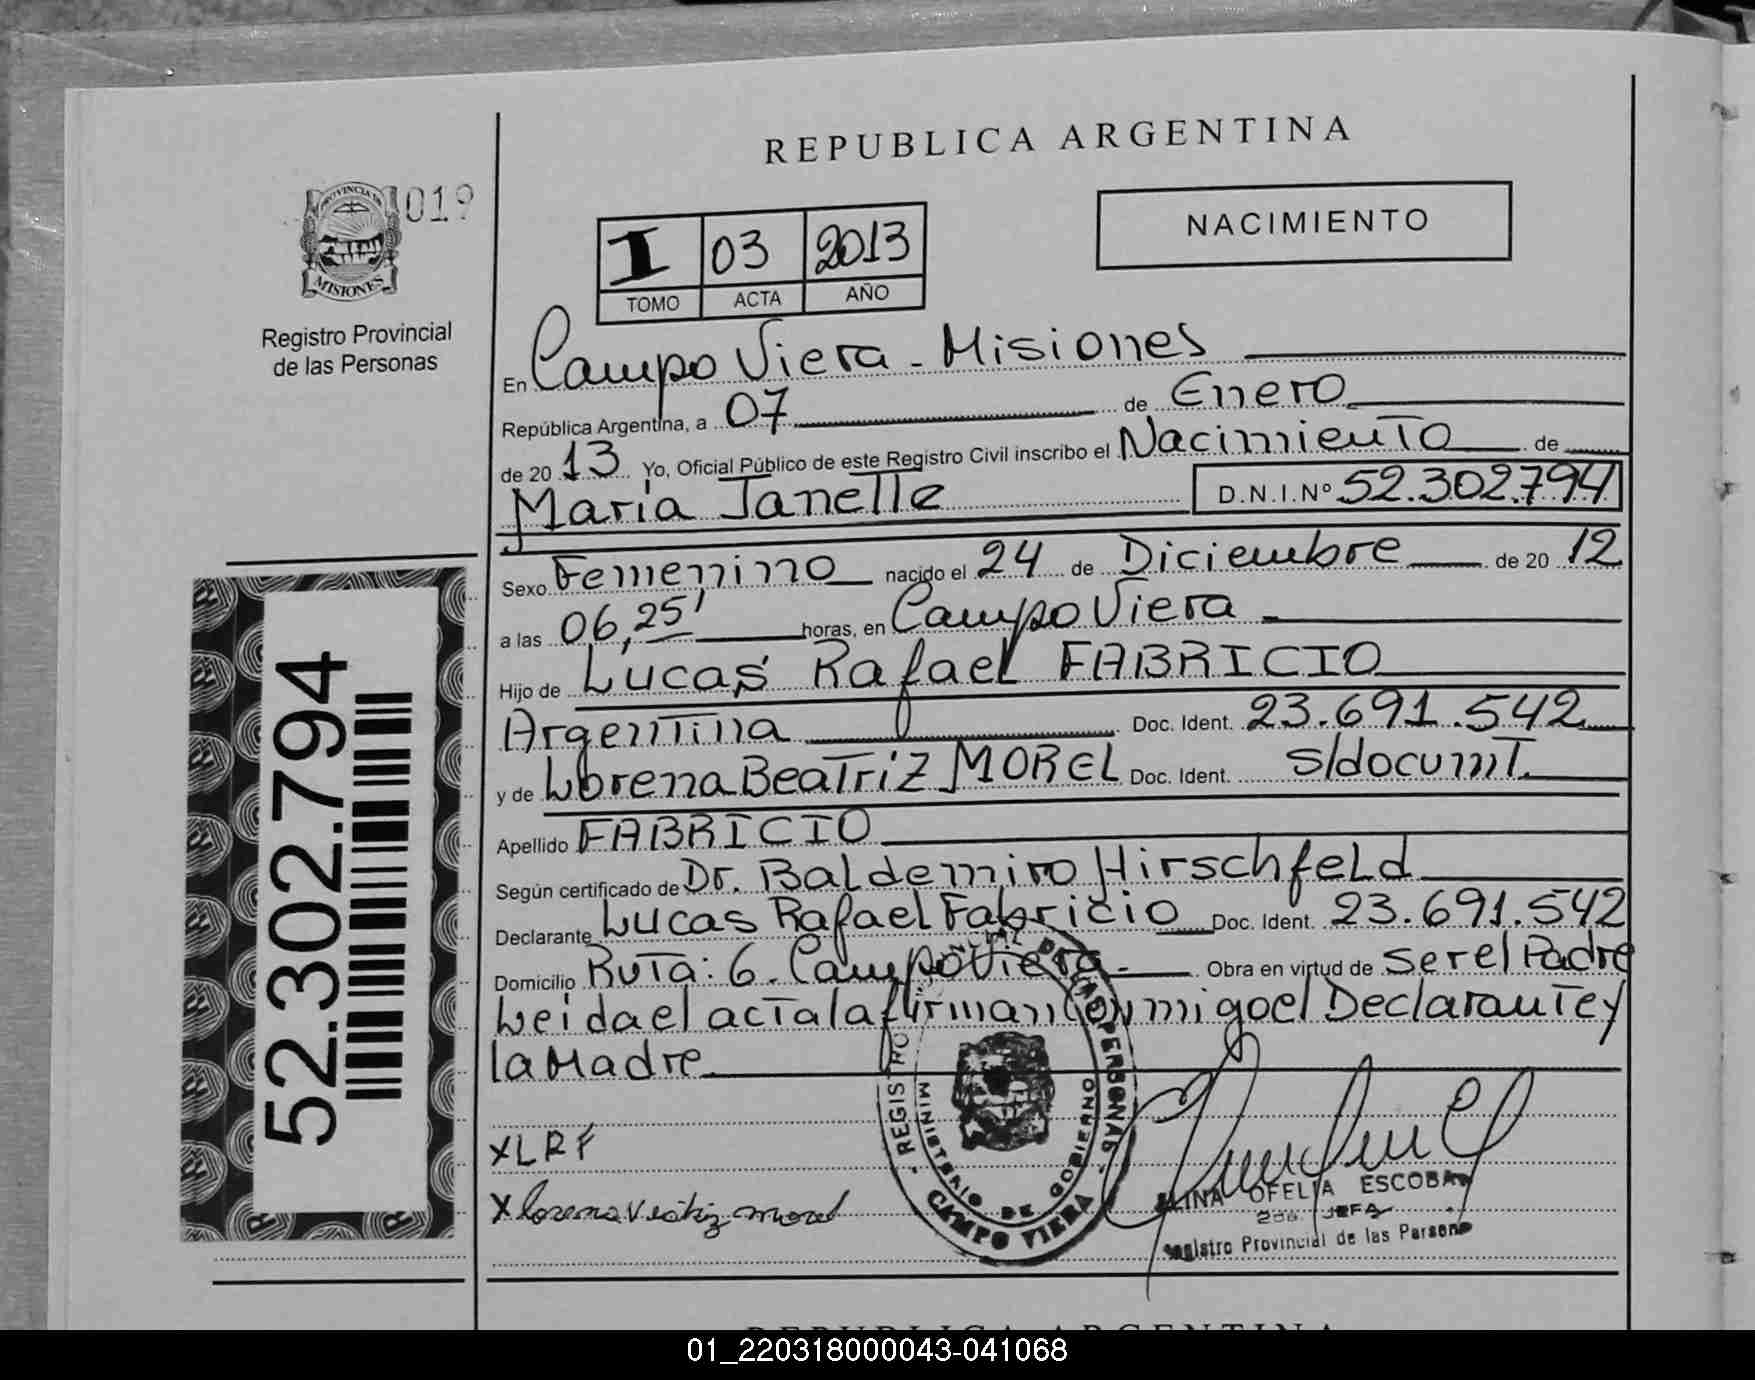 REPUBLICA ARGENTINA
019
PROVINCIA DE
MISIONES
Registro Provincial
de las Personas
I 03 2013
TOMO ACTA AÑO
NACIMIENTO
En Campo Viera - Misiones
República Argentina, a 07 de Enero
de 20 13 Yo, Oficial Público de este Registro Civil inscribo el Nacimiento de
María Janelle D.N.I.Nº 52.302.794
Sexo Femenino nacido el 24 de Diciembre de 20 12
a las 06,25' horas, en Campo Viera
Hijo de Lucas Rafael FABRICIO
Argentina Doc. Ident. 23.691.542
y de Lorena Beatriz MOREL Doc. Ident. s/documt.
Apellido FABRICIO
Según certificado de Dr. Baldemiro Hirschfeld
Declarante Lucas Rafael Fabricio Doc. Ident. 23.691.542
Domicilio Ruta: 6. Campo Viera- Obra en virtud de ser el Padre
Leida el acta la firman conmigo el Declarante y
la Madre.
XLRF
X Lorena Veatriz morel
52.302.794
REGISTRO PERSONAS
MINISTERIO DE GOBIERNO
CAMPO VIERA
OFELIA ESCOBAR
JEFA
Registro Provincial de las Personas
REPUBLICA ARGENTINA
01_220318000043-041068